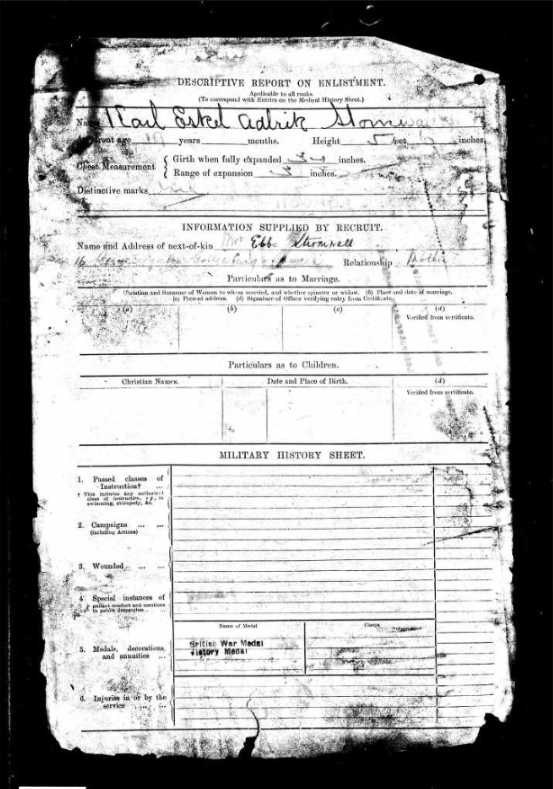 DESCRIPTIVE REPORT ON ENLISTMENT.
Applicable to all ranks.
(To correspond with Entries on the Medical History Sheet.)
Karl Eskel Adrik
age years months. Height 5 feet inches.
Chest Measurement { Girth when fully expanded inches.
Range of expansion inches.
Distinctive marks
INFORMATION SUPPLIED BY RECRUIT.
Name and Address of next-of-kin Ebba
16 Relationship Mother
Particulars as to Marriage.
(a) Christian and Surname of Woman to whom married, and whether spinster or widow. (b) Place and date of marriage.
(c) Present address. (d) Signature of Officer verifying entry from Certificate.
(a) (b) (c) (d)
Verified from certificate.
Particulars as to Children.
Christian Names. Date and Place of Birth. (d)
Verified from certificate.
MILITARY HISTORY SHEET.
1. Passed classes of
Instruction† ...
† This includes any authorised
class of instruction, e.g., in
swimming, &c.
2. Campaigns ... ...
(including Actions)
3. Wounded ... ...
4. Special instances of
gallant conduct and mentions
in public despatches ...
Name of Medal Clasps
5. Medals, decorations
and annuities ...
British War Medal
Victory Medal
6. Injuries in or by the
service ... ...